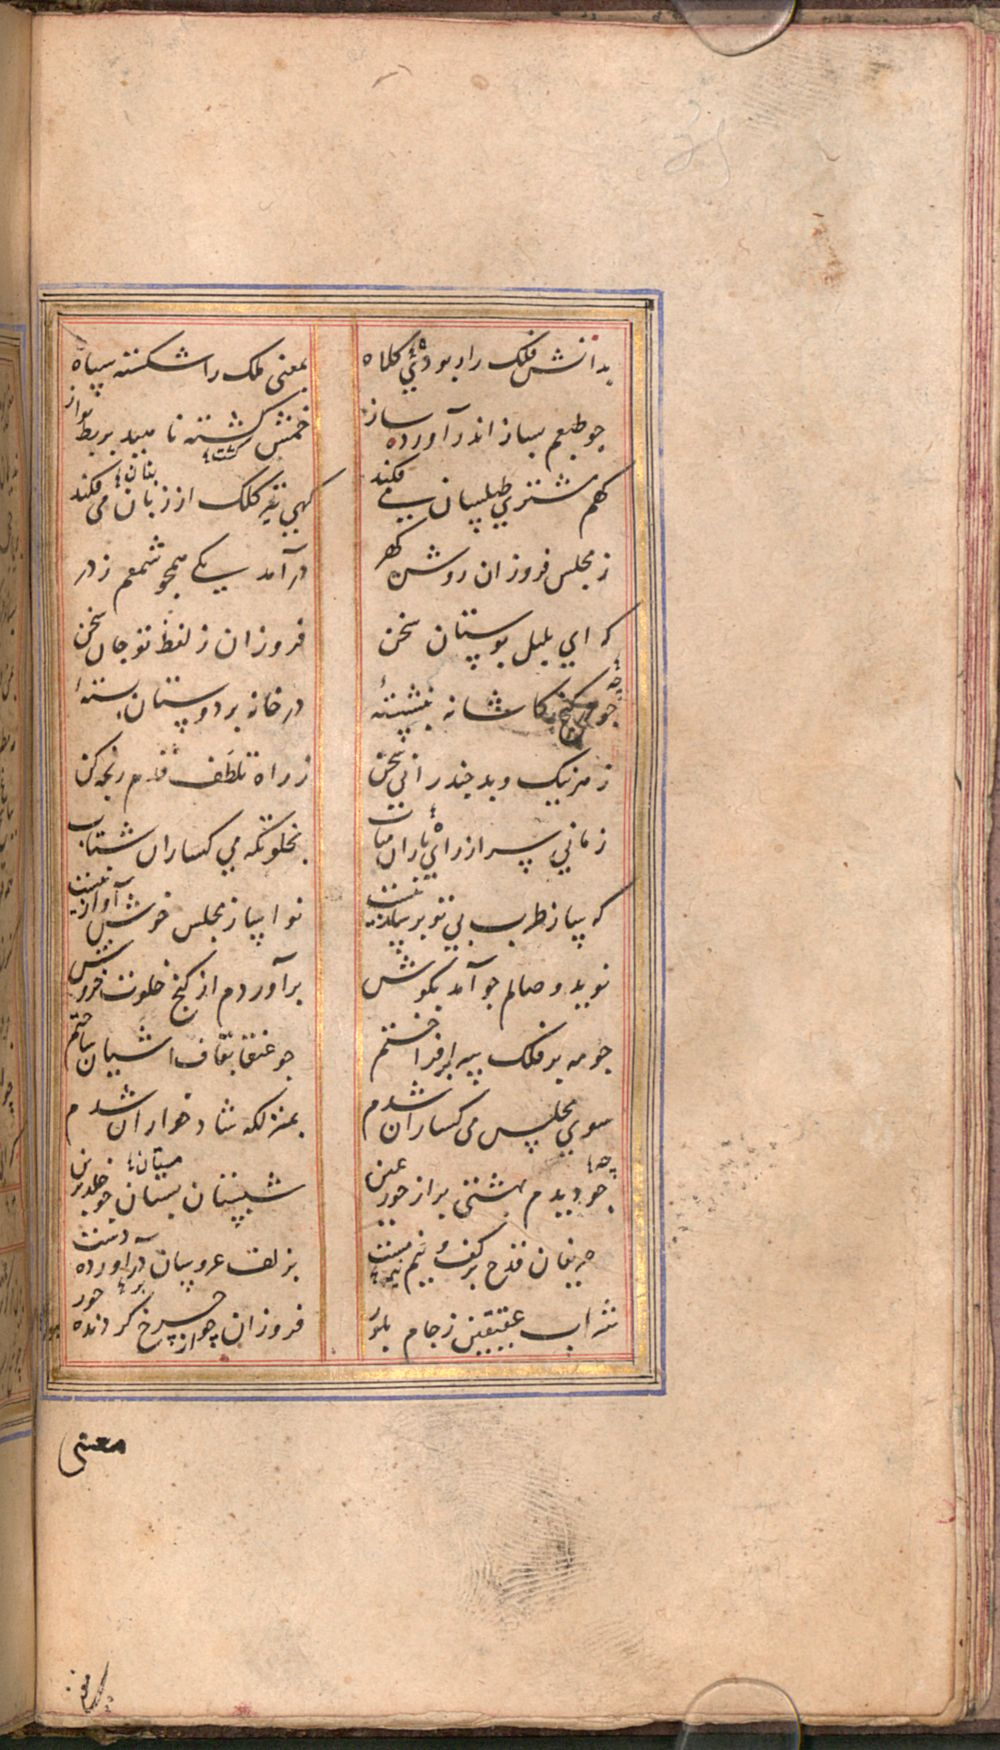 بدانش فلک را ربودی کلاه
بمعنی ملک را شکسته سپاه
جو طبعم بساز اندر آورده ساز
خمش کشته ناهید بربط نواز
کهم مشتری طیلسان می فکند
کهی تیر کلک از زبان می فکند
ز مجلس فروزان روشن کهر
درآمد یکی همچو شمعم ز در
که ای بلبل بوستان سخن
فروزان ز لفظ تو جان سخن
جو در کنج کاشانه بنشستهٔ
در خانه بر دوستان بستهٔ
ز هر نیک و بد چند رانی سخن
ز راه تلطف قدم رنجه کن
زمانی سر از رای یاران متاب
بخلوتکه می کساران شتاب
که ساز طرب بی تو بر ساز نیست
نواساز مجلس خوش آواز نیست
نوید وصالم جو آمد بکوش
برآوردم از کنج خلوت خروش
جو مه بر فلک سر برافراختم
جو عنقا بقاف آشیان ساختم
سوی مجلس می کساران شدم
بمنزلکه شادخواران شدم
جو دیدم بهشتی پر از حور عین
شبستان بستان جو خلد برین
حریفان قدح بر کف و نیم مست
بزلف عروسان درآورده دست
شراب عقیقین ز جام بلور
فروزان چو از چرخ کردنده هور
معنی